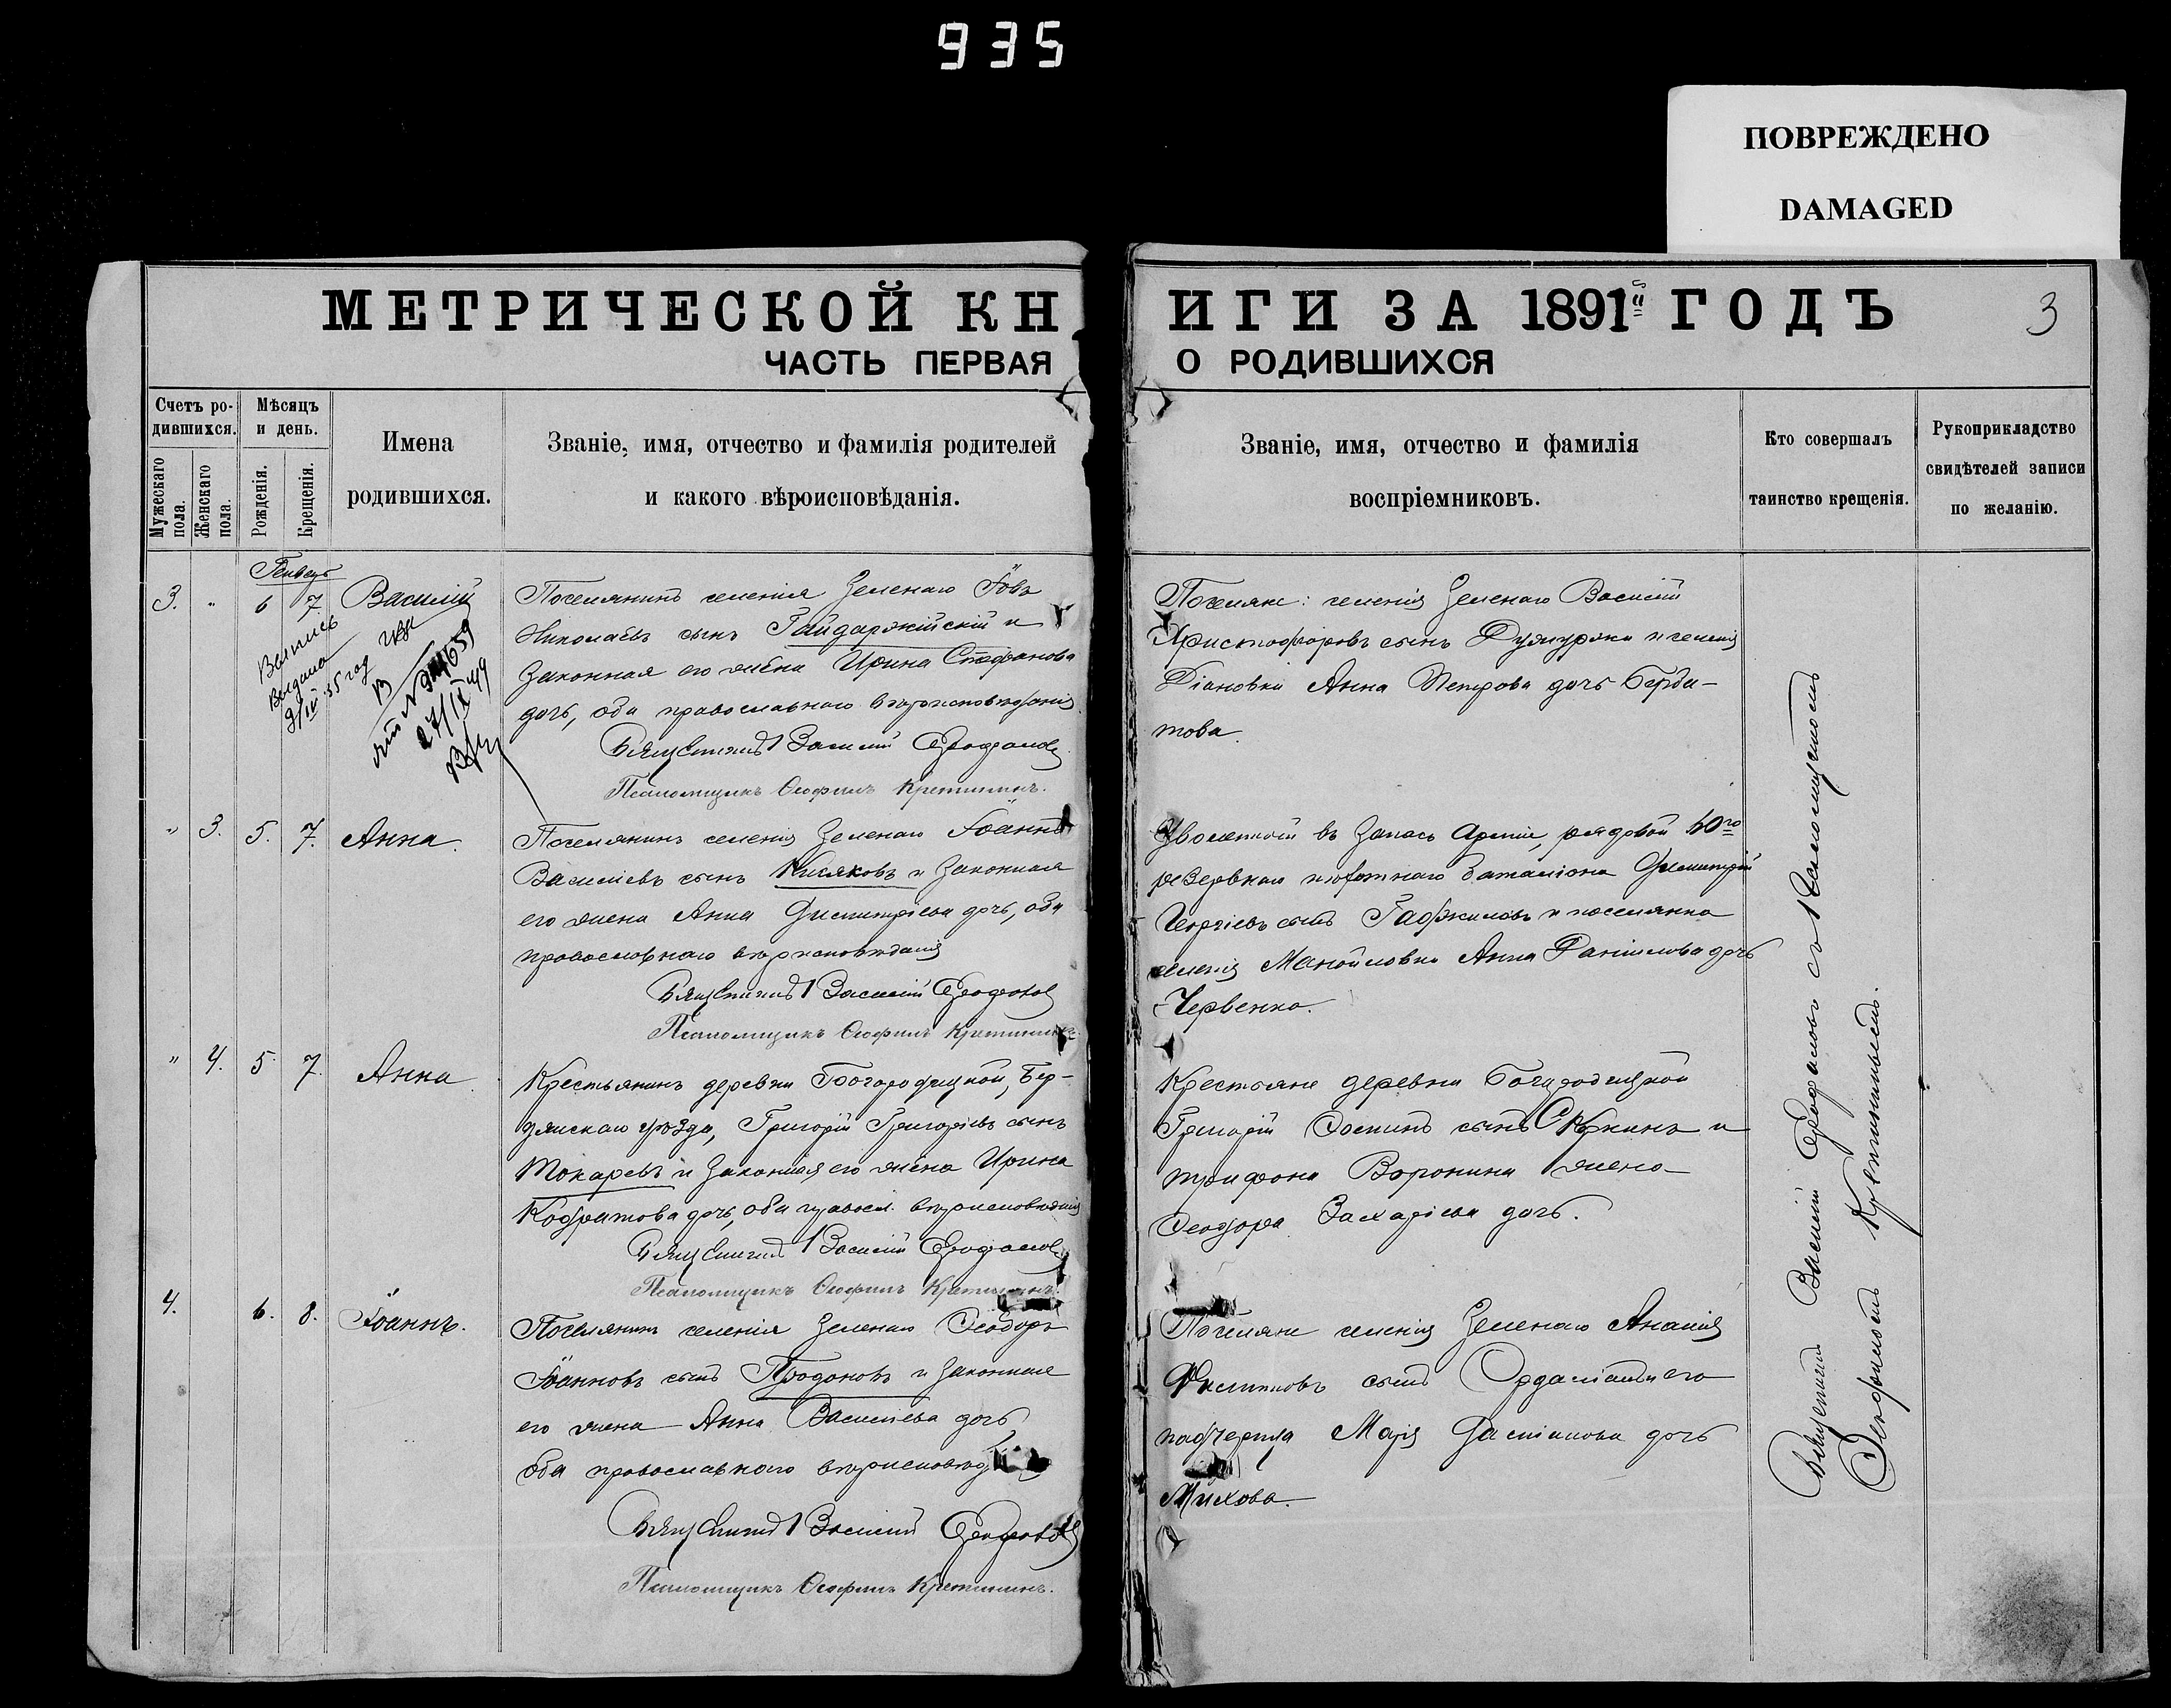 935
ПОВРЕЖДЕНО
DAMAGED
МЕТРИЧЕСКОЙ КН
ИГИ ЗА 1891 й ГОДЪ
3
ЧАСТЬ ПЕРВАЯ
О РОДИВШИХСЯ
Счетъ ро-
дившихся.
Мужескаго пола.
Женскаго пола.
Мѣсяцъ
и день.
Рожденія.
Крещенія.
Имена
родившихся.
Званіе, имя, отчество и фамилія родителей
и какого вѣроисповѣданія.
Званіе, имя, отчество и фамилія
воспріемниковъ.
Кто совершалъ
таинство крещенія.
Рукоприкладство
свидѣтелей записи
по желанію.
3. " 6 7 Василій
Поселянинъ селенія Зеленаго Іовъ
Николаевъ сынъ Гайдаржійскій и
законная его жена Ирина Стефанова
дочь, оба православнаго вѣроисповѣданія
Священникъ Василій
Псаломщикъ Ѳеофилъ Кретининъ.
Поселяне: селенія Зеленаго Василій
Христофоровъ сынъ и селенія
Діановки Анна Петрова дочь Берба-
това.
" 3. 5. 7. Анна.
Поселянинъ селенія Зеленаго Іоаннъ
Василіевъ сынъ Кисяковъ и законная
его жена Анна Димитріева дочь, оба
православнаго вѣроисповѣданія
Священникъ Василій
Псаломщикъ Ѳеофилъ Кретининъ.
Уволенный въ запасъ Арміи, рядовой
резервнаго пѣхотнаго баталіона Димитрій
Георгіевъ сынъ и поселянка
селенія Мануйловки Анна Даніилова дочь
Червенко.
" 4. 5 7. Анна.
Крестьянинъ деревни Богородицкой, Бер-
дянскаго уѣзда, Григорій Григоріевъ сынъ
Токаревъ и законная его жена Ирина
Кодратова дочь, оба правосл. вѣроисповѣданія
Священникъ Василій
Псаломщикъ Ѳеофилъ Кретининъ.
Крестьяне деревни Богородицкой
Григорій сынъ и
Трифона Воронина жена
Ѳеодора Захаріева дочь.
4. 6. 8. Іоаннъ.
Поселянинъ селенія Зеленаго Ѳеодоръ
Іоанновъ сынъ Продановъ и законная
его жена Анна Василіева дочь,
оба православнаго
Священникъ Василій
Псаломщикъ Ѳеофилъ Кретининъ.
Поселяне селенія Зеленаго Ананія
сынъ и его
падчерица Марія Даміанова дочь
Михова.
Священникъ Василій съ Псаломщикомъ
Кретининымъ.